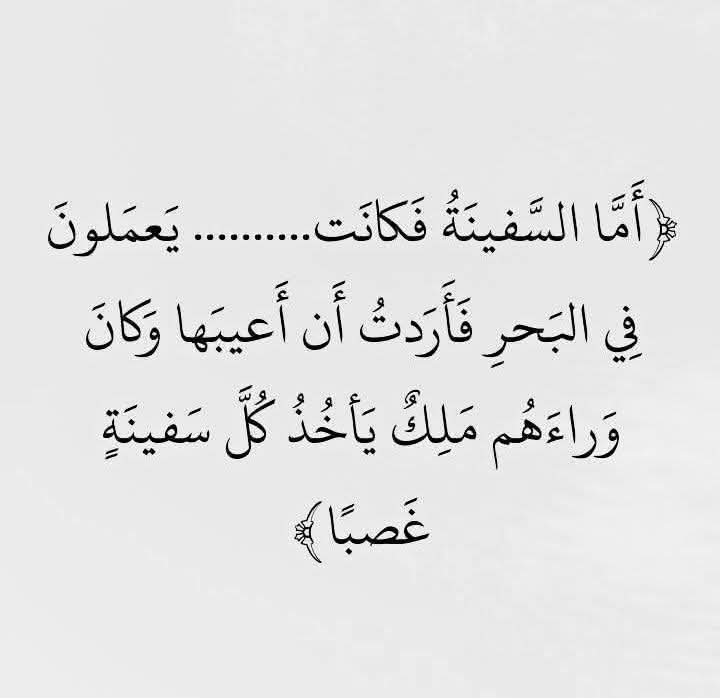 ﴿أَمَّا السَّفينَةُ فَكانَت.......... يَعمَلونَ
فِي البَحرِ فَأَرَدتُ أَن أَعيبَها وَكانَ
وَراءَهُم مَلِكٌ يَأخُذُ كُلَّ سَفينَةٍ
غَصبًا﴾